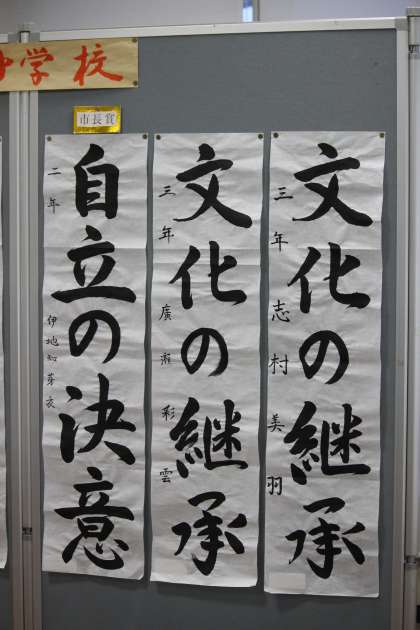 学校
市長賞
文化の継承
三年 志村美羽
文化の継承
三年 廣瀬彩雲
自立の決意
二年 伊地知芽亥